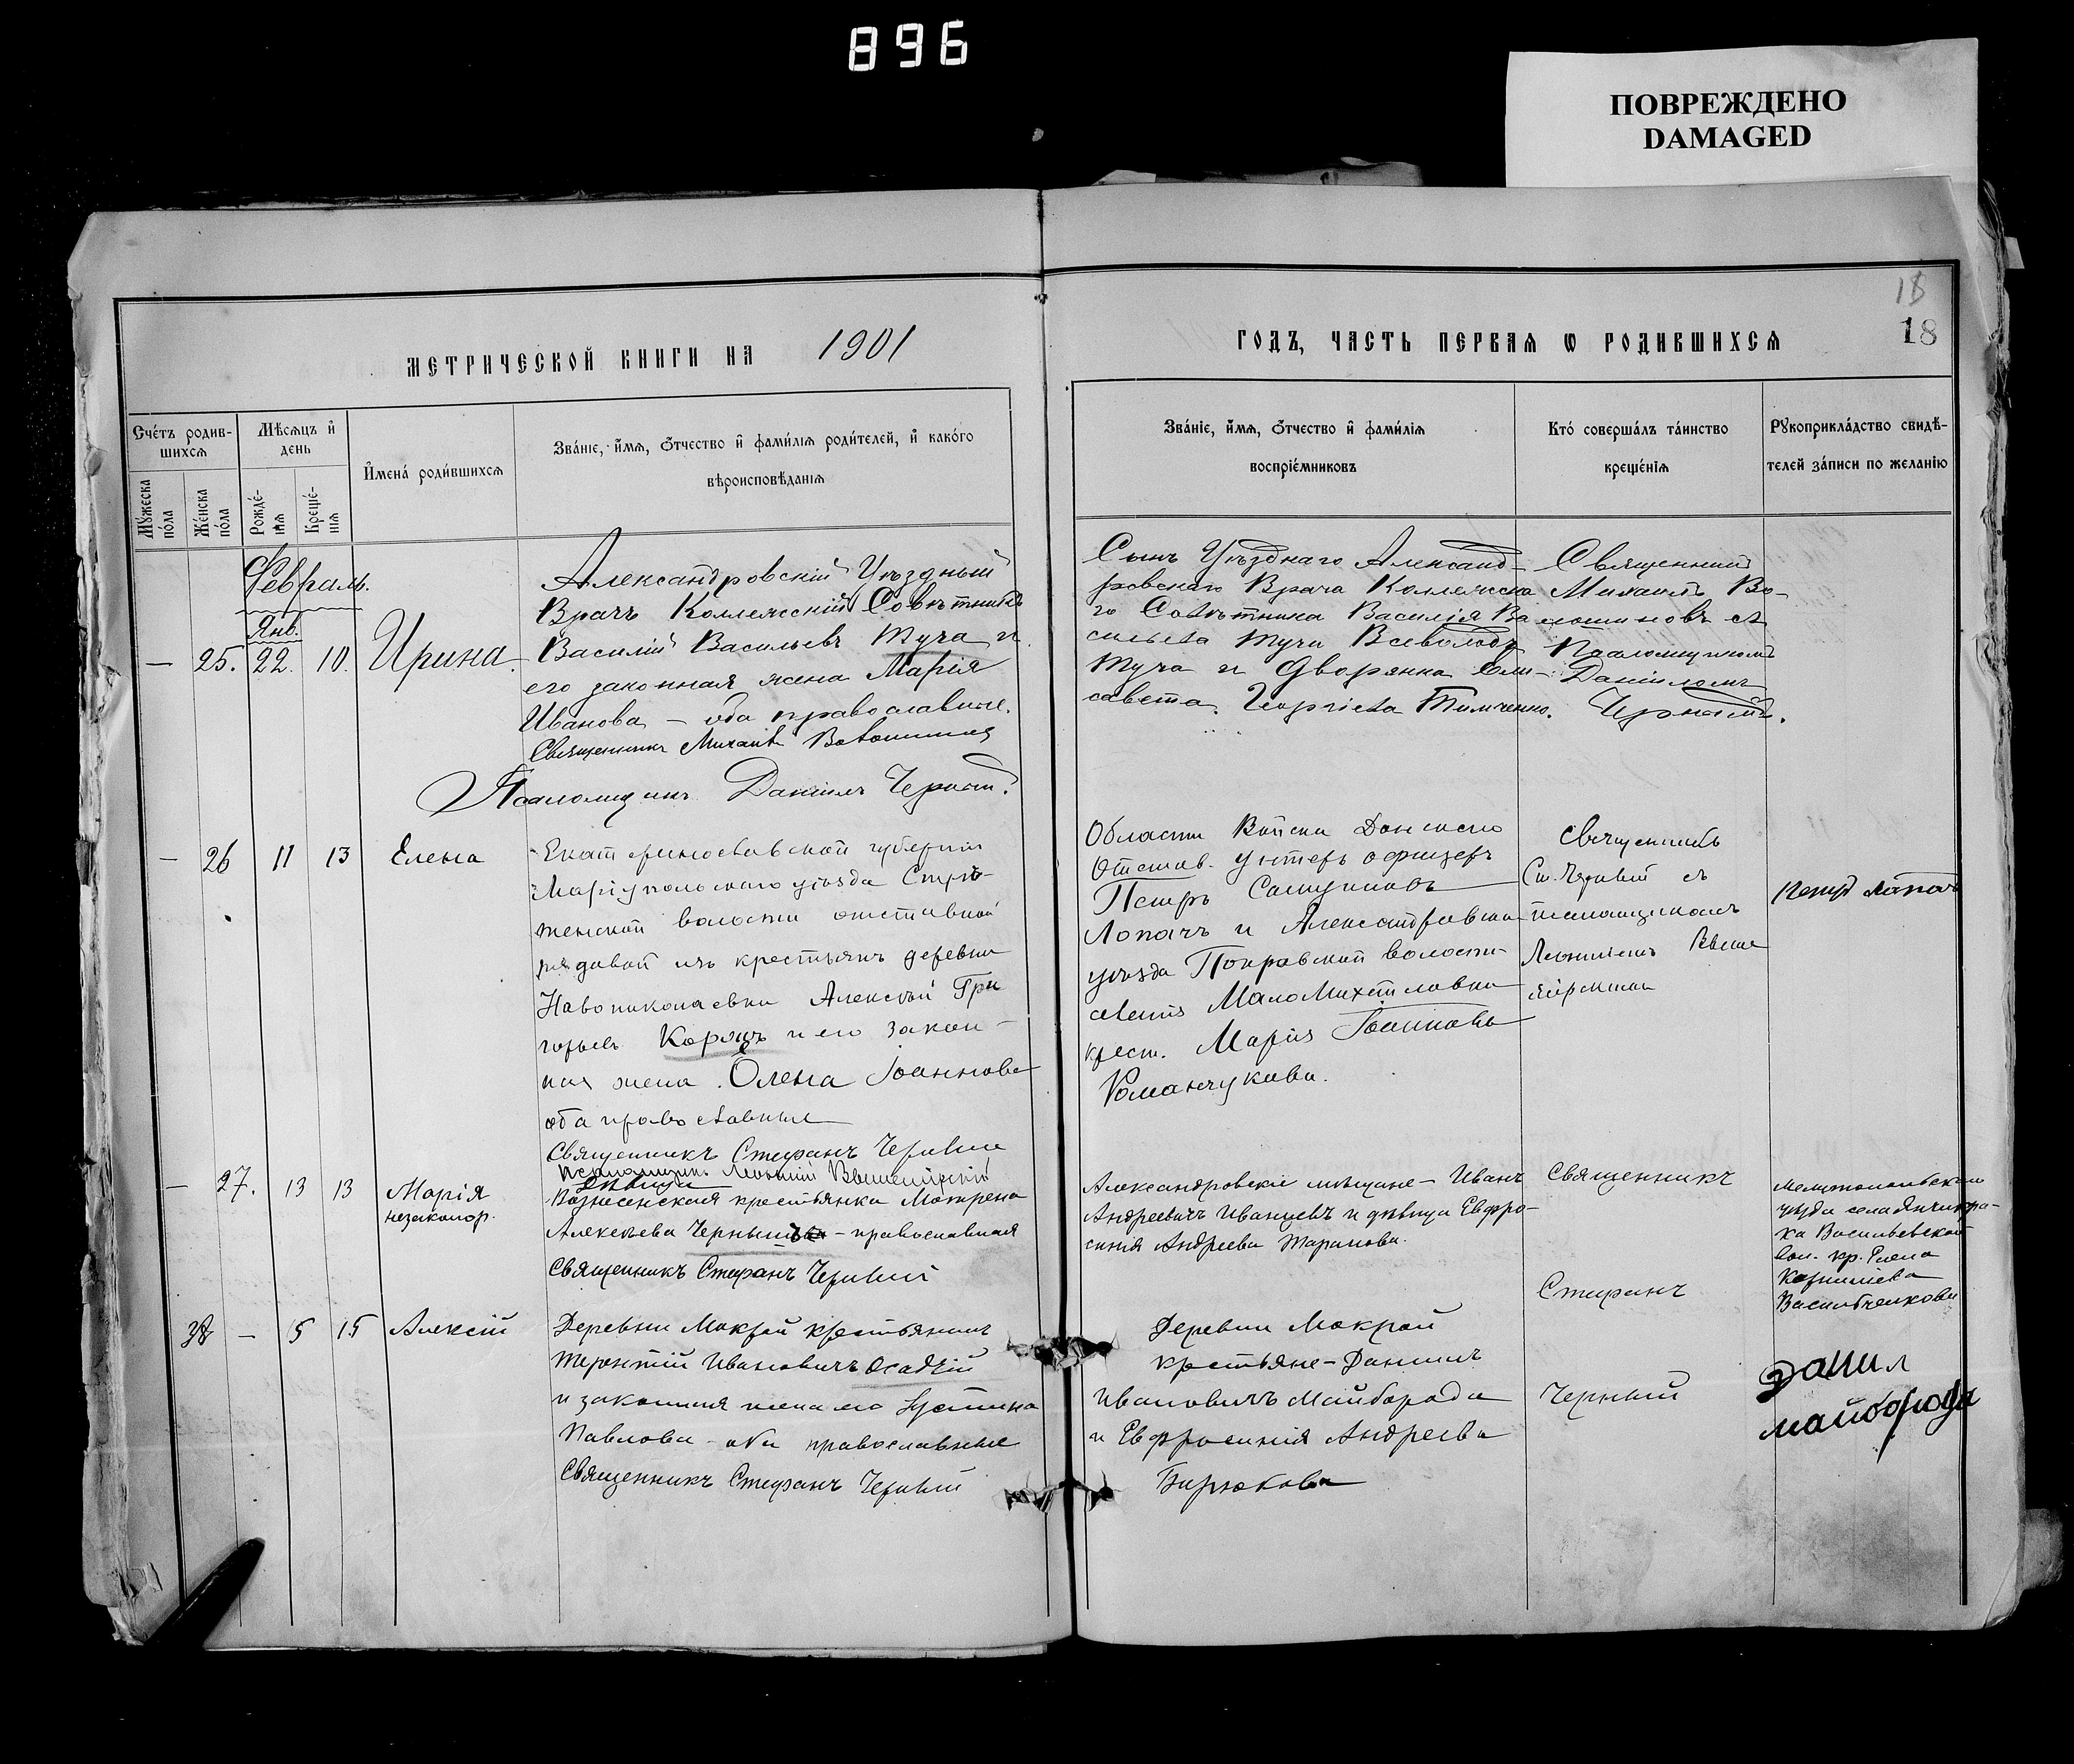 896
ПОВРЕЖДЕНО
DAMAGED
18
18
МЕТРИЧЕСКОЙ КНИГИ НА 1901
ГОДЪ, ЧАСТЬ ПЕРВАѦ Ѡ РОДИВШИХСѦ
Сче́тъ родив-
шихсѧ
Мѣ́сѧцъ и҆
день
Мꙋ́жеска
по́ла
Же́нска
по́ла
Рожде́-
нїѧ
Креще́-
нїѧ
И҆мена́ роди́вшихсѧ
Зва́нїе, и҆́мѧ, ѻ҆́тчество и҆ фами́лїѧ роди́телей, и҆ како́го
вѣроисповѣ́данїѧ
Зва́нїе, и҆́мѧ, ѻ҆́тчество и҆ фами́лїѧ
воспрїе́мниковъ
Кто́ соверша́лъ та́инство
креще́нїѧ
Рꙋкоприкла́дство свидѣ́-
телей за́писи по жела́нїю
Февраль.
Янв.
— 25. 22. 10. Ирина.
Александровскій Уѣздный
Врачъ Коллежскій Совѣтникъ
Василій Васильевъ Туча и
его законная жена Марія
Иванова – оба православные.
Священникъ Михаилъ
Псаломщикъ Даніилъ Черный.
Сынъ Уѣзднаго Александ-
ровскаго Врача Коллежска
го Совѣтника Василія Ва
сильева Тучи Всеволодъ
Туча и Дворянка Ели-
савета Георгіева Тимченко.
Священникъ
Михаилъ Во-
лошиновъ съ
Псаломщикомъ
Даніиломъ
Чернымъ.
— 26 11 13 Елена
Екатеринославской губерніи
Маріупольскаго уѣзда
волости отставной
рядовой изъ крестьянъ деревни
Новониколаевки Алексѣй Гри
горьевъ и его закон-
ная жена Олена Іоаннова
оба православные
Священникъ Стефанъ Черный
Псаломщикъ
Области Войска Донского
Отстав. унтеръ офицеръ
Петръ
Лопачъ и Александровска
уѣзда Покровской волости
Мало Михайловки
крест. Марія Іоаннова
Романчукова.
Священникъ
Ст. Черный съ
псаломщикомъ
Петръ Лапачъ
— 27. 13 13 Марія
незаконор.
дѣвица
Вознесенская крестьянка Матрена
Алексѣева – православная
Священникъ Стефанъ Черный
Александровскіе мѣщане – Иванъ
Андреевичъ Иванцевъ и дѣвица Евфро-
синія Андреева Таранова.
Священникъ
Мелитопольскаго
уѣзда села
ка Васильевской
вол. кр. Елена
Корниліева
Васильченкова
38 — 5 15 Алексій
Деревни Мокрой крестьянинъ
Терентій Ивановичъ Осадчій
и законная жена его Іустина
Павлова – оба православные
Священникъ Стефанъ Черный
Деревни Мокрой
крестьяне – Даніилъ
Ивановичъ Майборода
и Евфросинія Андреева
Бирюкова
Стефанъ
Черный
Данил
майборода